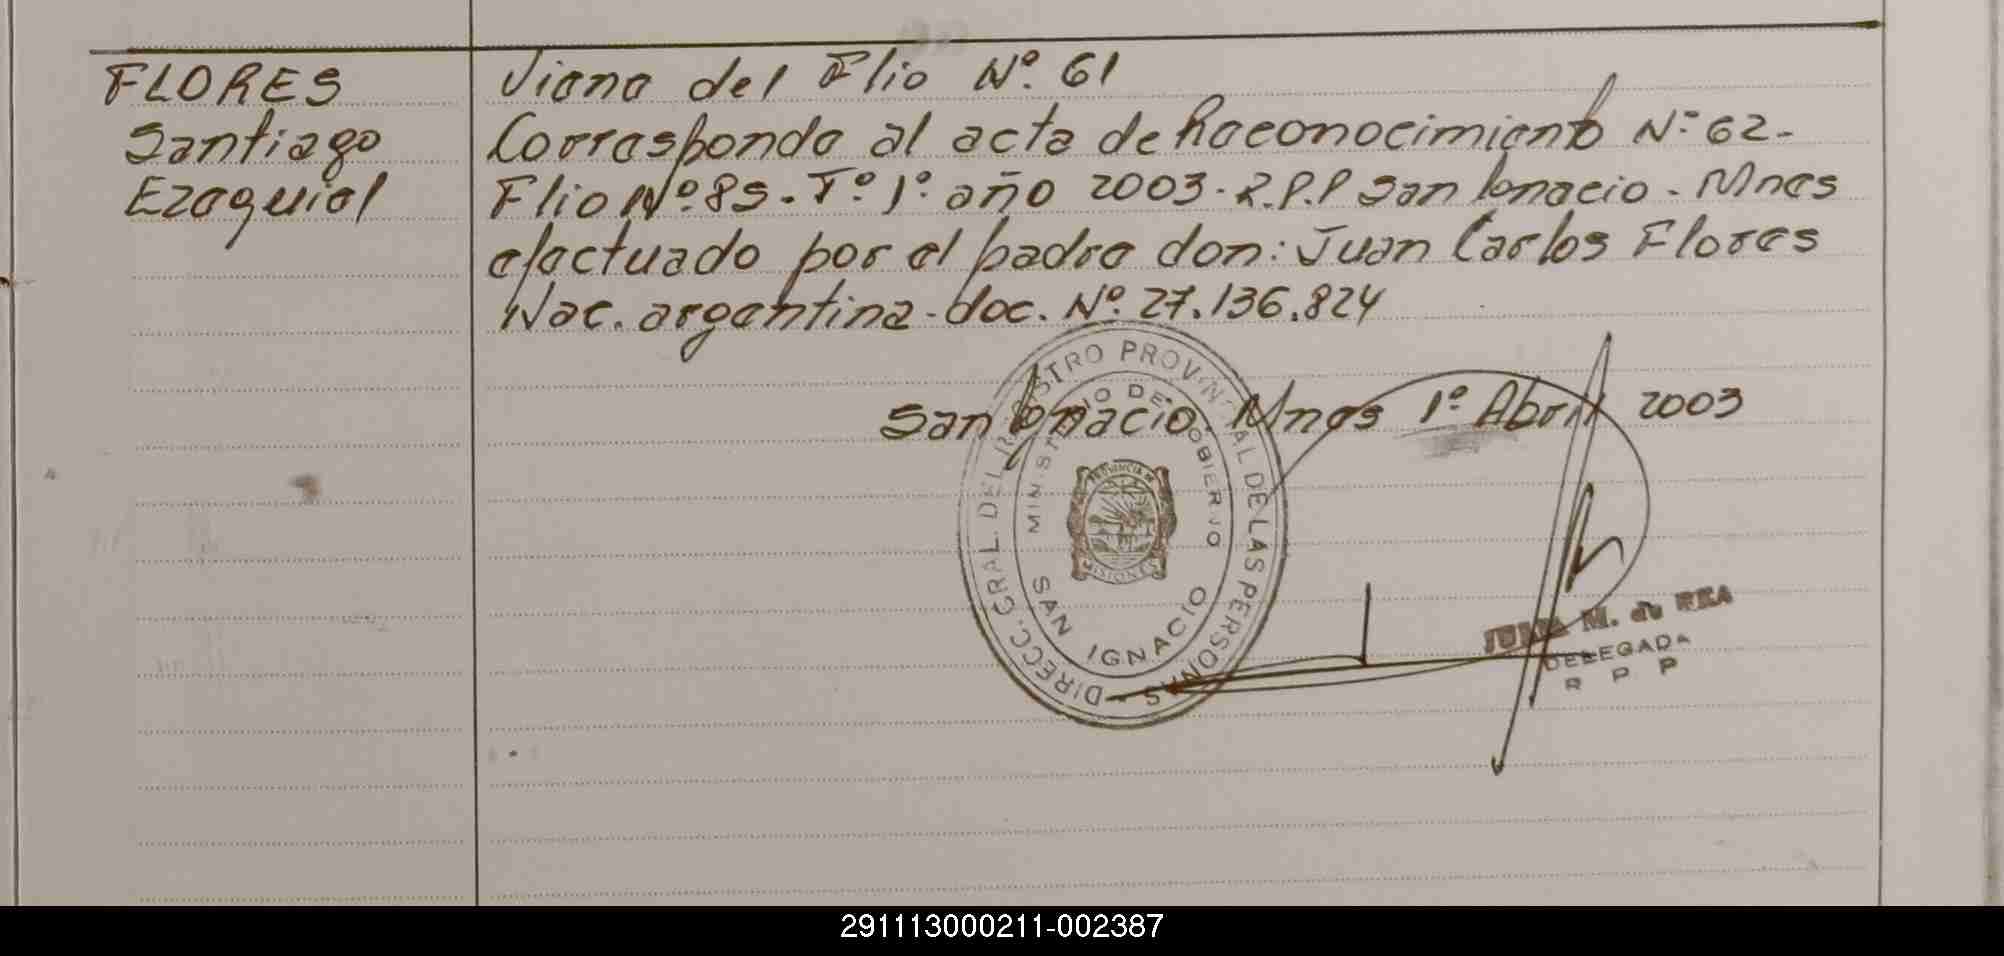 FLORES
Santiago
Ezequiel
Viene del Flio Nº. 61
Corresponde al acta de Reconocimiento Nº 62-
Flio Nº. 85. Tº. 1º. año 2003. R.P.P San Ignacio - Mnes
efectuado por el padre don: Juan Carlos Flores
Nac. argentina - doc. Nº. 27.136.824
San Ignacio. Mnes 1º Abril 2003
DIRECC. GRAL. DEL REGISTRO PROVINCIAL DE LAS PERSONAS
MINISTERIO DE GOBIERNO
PROVINCIA DE
MISIONES
SAN IGNACIO
M. de REA
DELEGADA
R P P
291113000211-002387